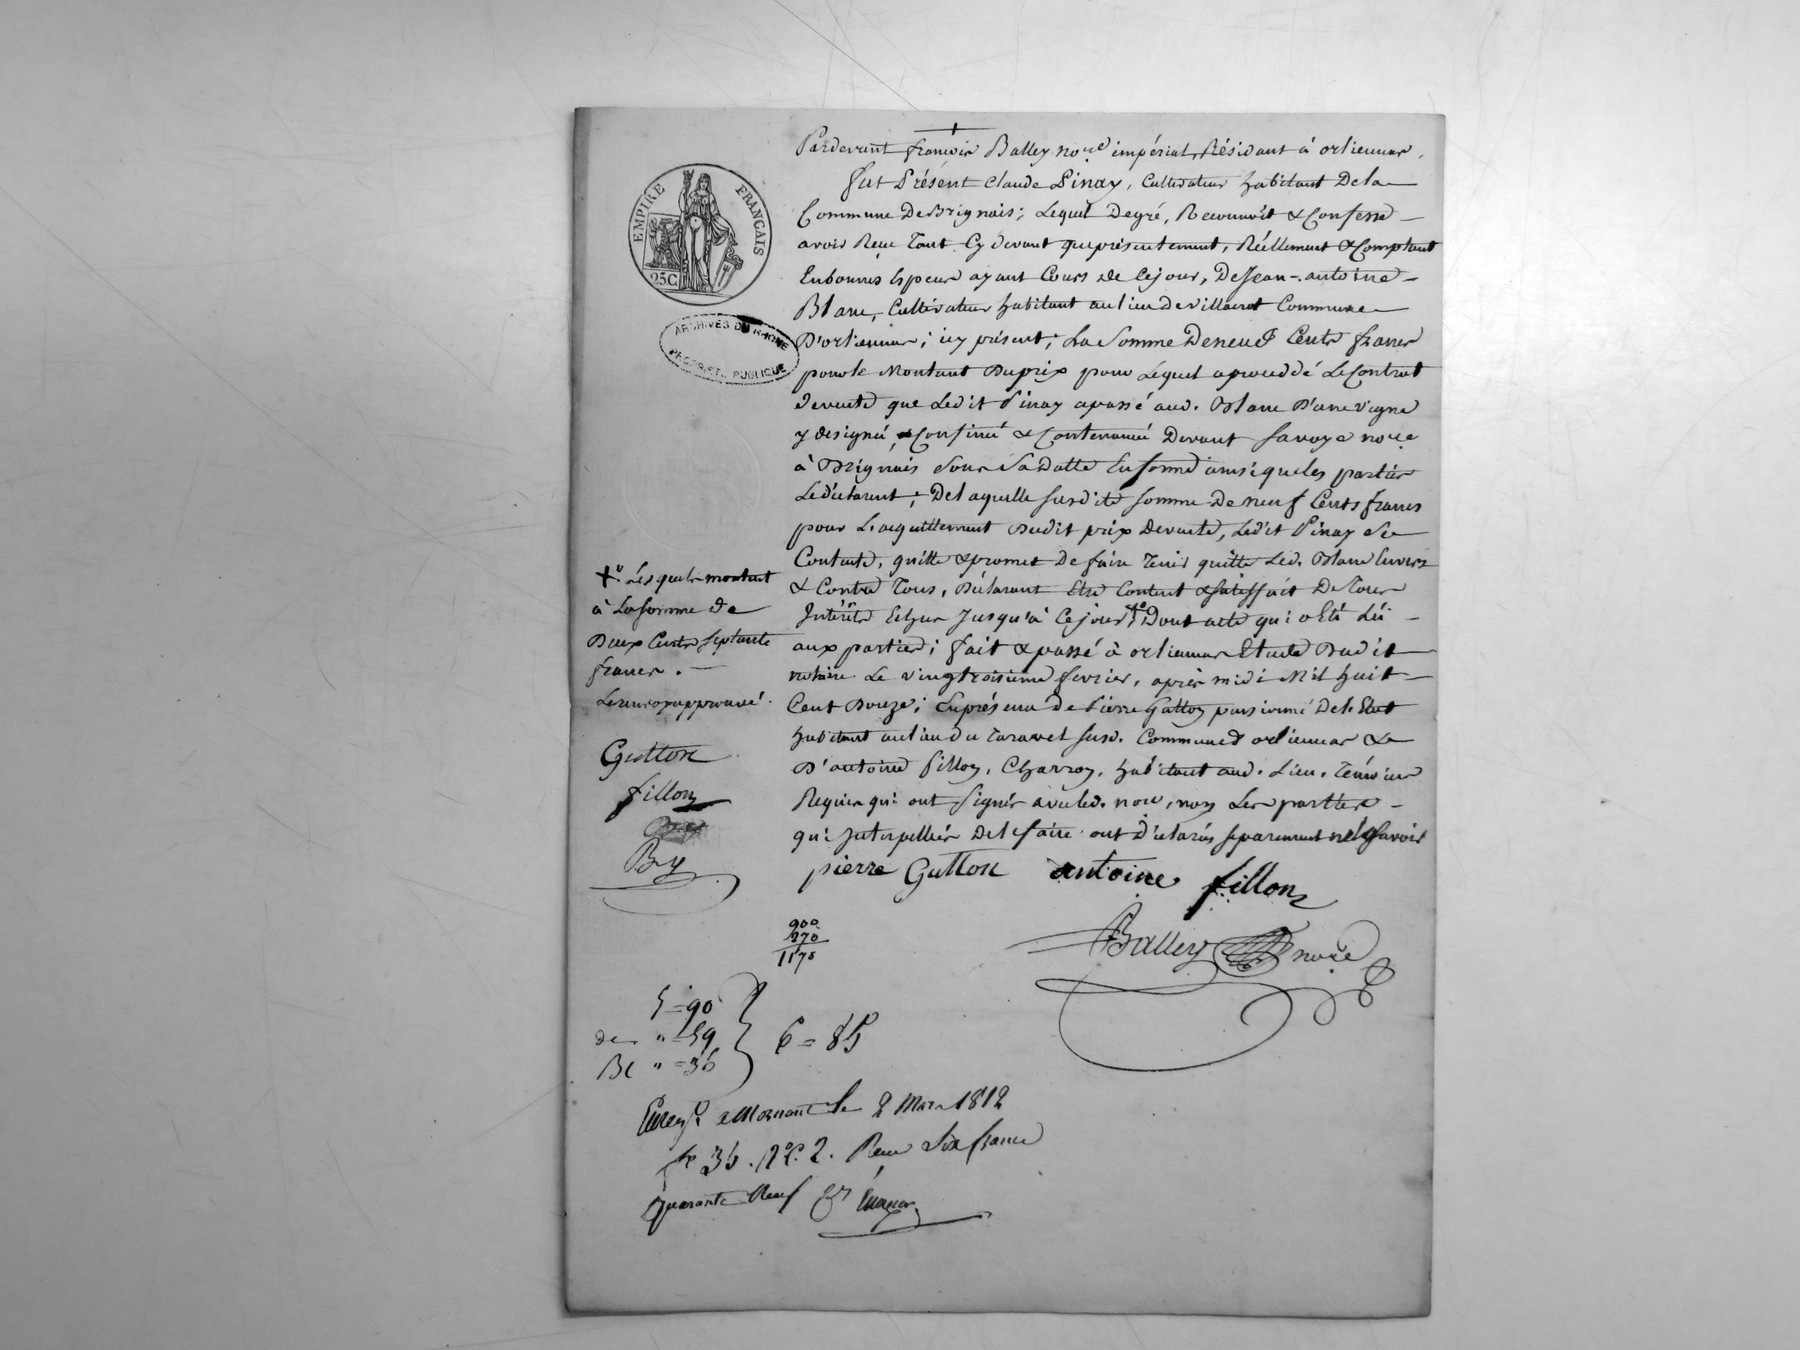 Pardevant françois Balley no.re impérial, Résidant à orliennas.
fut Présent Claude Pinay, Cultivateur habitant De la
Commune De Brignais; Lequel De gré, Reconnoit & Confesse
avoir Reçu Tant Cy devant que présentement, Réellement & Comptant
En bonnes Especes ayant Cours de Ce jour, De Jean-antoine
Blanc, Cultivateur habitant au lieu de villaret Commune
D'orliennas; icy présent; La Somme De neuf Cents francs
pour le Montant Du prix pour Lequel a procédé Le Contrat
de vente que Ledit Pinay a passé aud. Blanc D'une vigne
y désigné, Confiné & Contenancé Devant Savoye no.re
à Brignais Sous Sa Datte En forme ainsi que les parties
Le déclarent; De laquelle Susdite Somme De neuf Cents francs
pour L'acquittement Dudit prix De vente, Ledit Pinay Se
Contente, quitte & promet De faire Tenir quitte Led. Blanc Envers
& Contre Tous, Déclarant Etre Content & Satisfait De Tous
Intérêts Echus Jusqu'à Ce jour; Dont acte qui a Eté Lû
aux parties; fait & passé à orliennas Etude Dudit
notaire Le vingt troisieme fevrier, après midi Mil huit
Cent Douze; En présence de Pierre Gutton pensionné De l'Etat
habitant au lieu du Taravel susd. Commune d'orliennas &
D'antoine fillon, Charron, habitant aud. Lieu, Témoins
Requis qui ont Signés avec led. no.re, non Les parties
qui Interpellées De le faire ont Déclarés séparément ne le Savoir
pierre Gutton antoine fillon
Balley no.re
EMPIRE FRANÇAIS
25C.
ARCHIVES DU RHONE
PROPRIÉTÉ PUBLIQUE
+ Lesquels montent
à La somme de
Deux Cents Septante
francs.
Le renvoy approuvé.
Gutton
fillon
By
900
270
1170
5 = 90
de " = 59
Bl " = 36
6 = 85
Enreg.é a Mornant le 2 Mars 1812
f.o 36. R.o C. 2. Reçu Six francs
Quarante Neuf